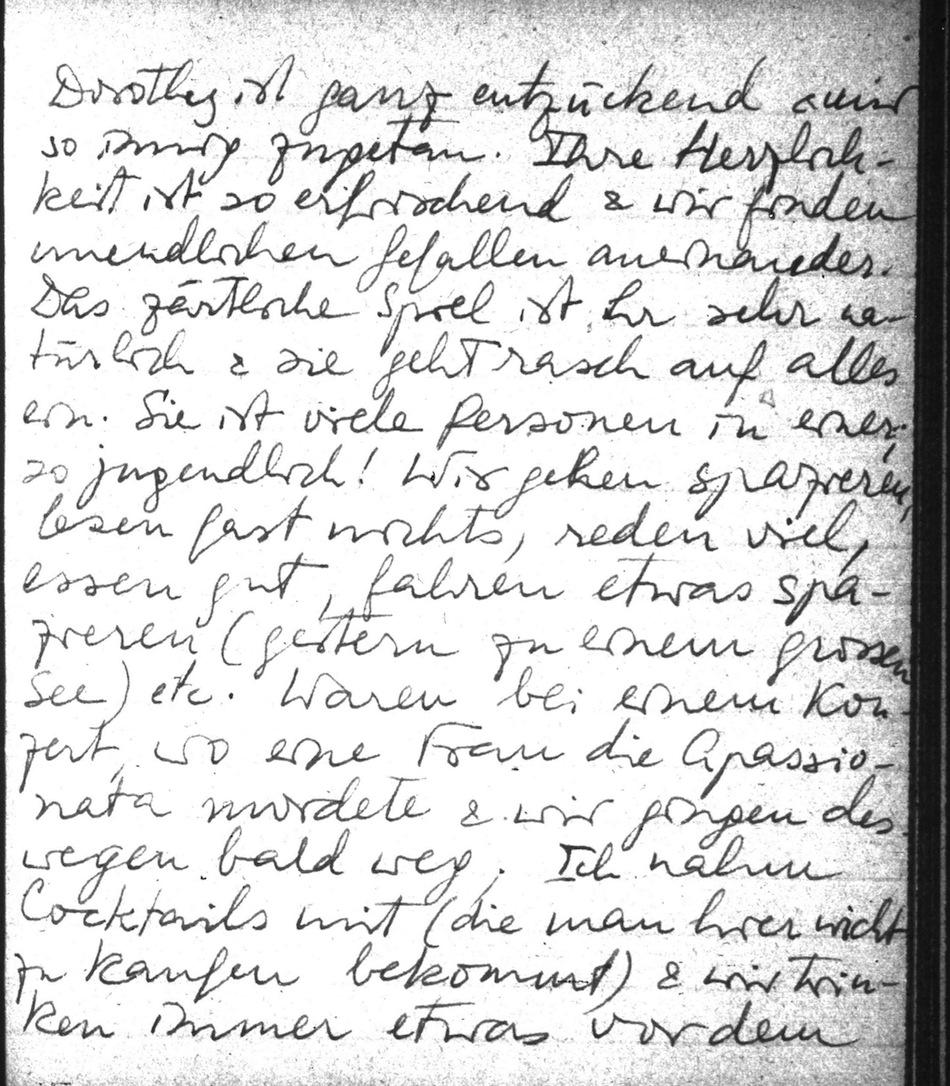 Dorothy ist ganz entzückend & mir
so innig zugetan. Ihre Herzlich-
keit ist so erfrischend & wir finden
unendlichen Gefallen aneinander.
Das zärtliche Spiel ist ihr sehr na-
türlich & sie geht rasch auf alles
ein. Sie ist viele Personen in einer,
so jugendlich! Wir gehen spazieren,
lesen fast nichts, reden viel,
essen gut, fahren etwas spa-
zieren (gestern zu einem grossen
See) etc. Waren bei einem Kon-
zert, wo eine Frau die Apassio-
nata mordete & wir gingen des-
wegen bald weg. Ich nahm
Cocktails mit (die man hier nicht
zu kaufen bekommt) & wir trin-
ken immer etwas vor dem